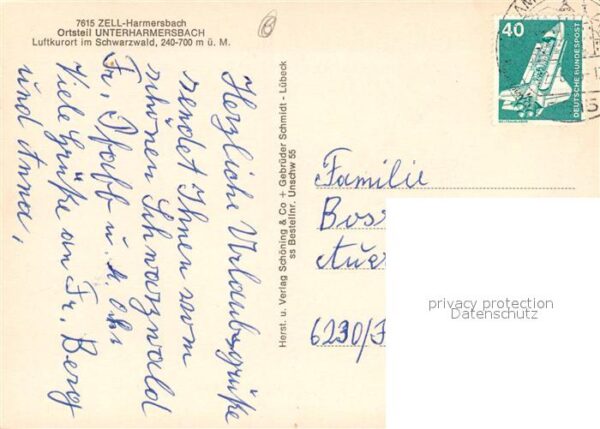 7615 ZELL-Harmersbach
Ortsteil UNTERHARMERSBACH
Luftkurort im Schwarzwald, 240-700 m ü. M.
Herzliche Urlaubsgrüße
sendet Ihnen vom
schönen Schwarzwald
Fr. Pfaff u.
Viele Grüße an Fr. Berg
und Anna,
Herst. u. Verlag Schöning & Co + Gebrüder Schmidt - Lübeck
ss Bestellnr. Unschw 55
40
DEUTSCHE BUNDESPOST
Familie
Bos
Auer
6230/F
privacy protection
Datenschutz